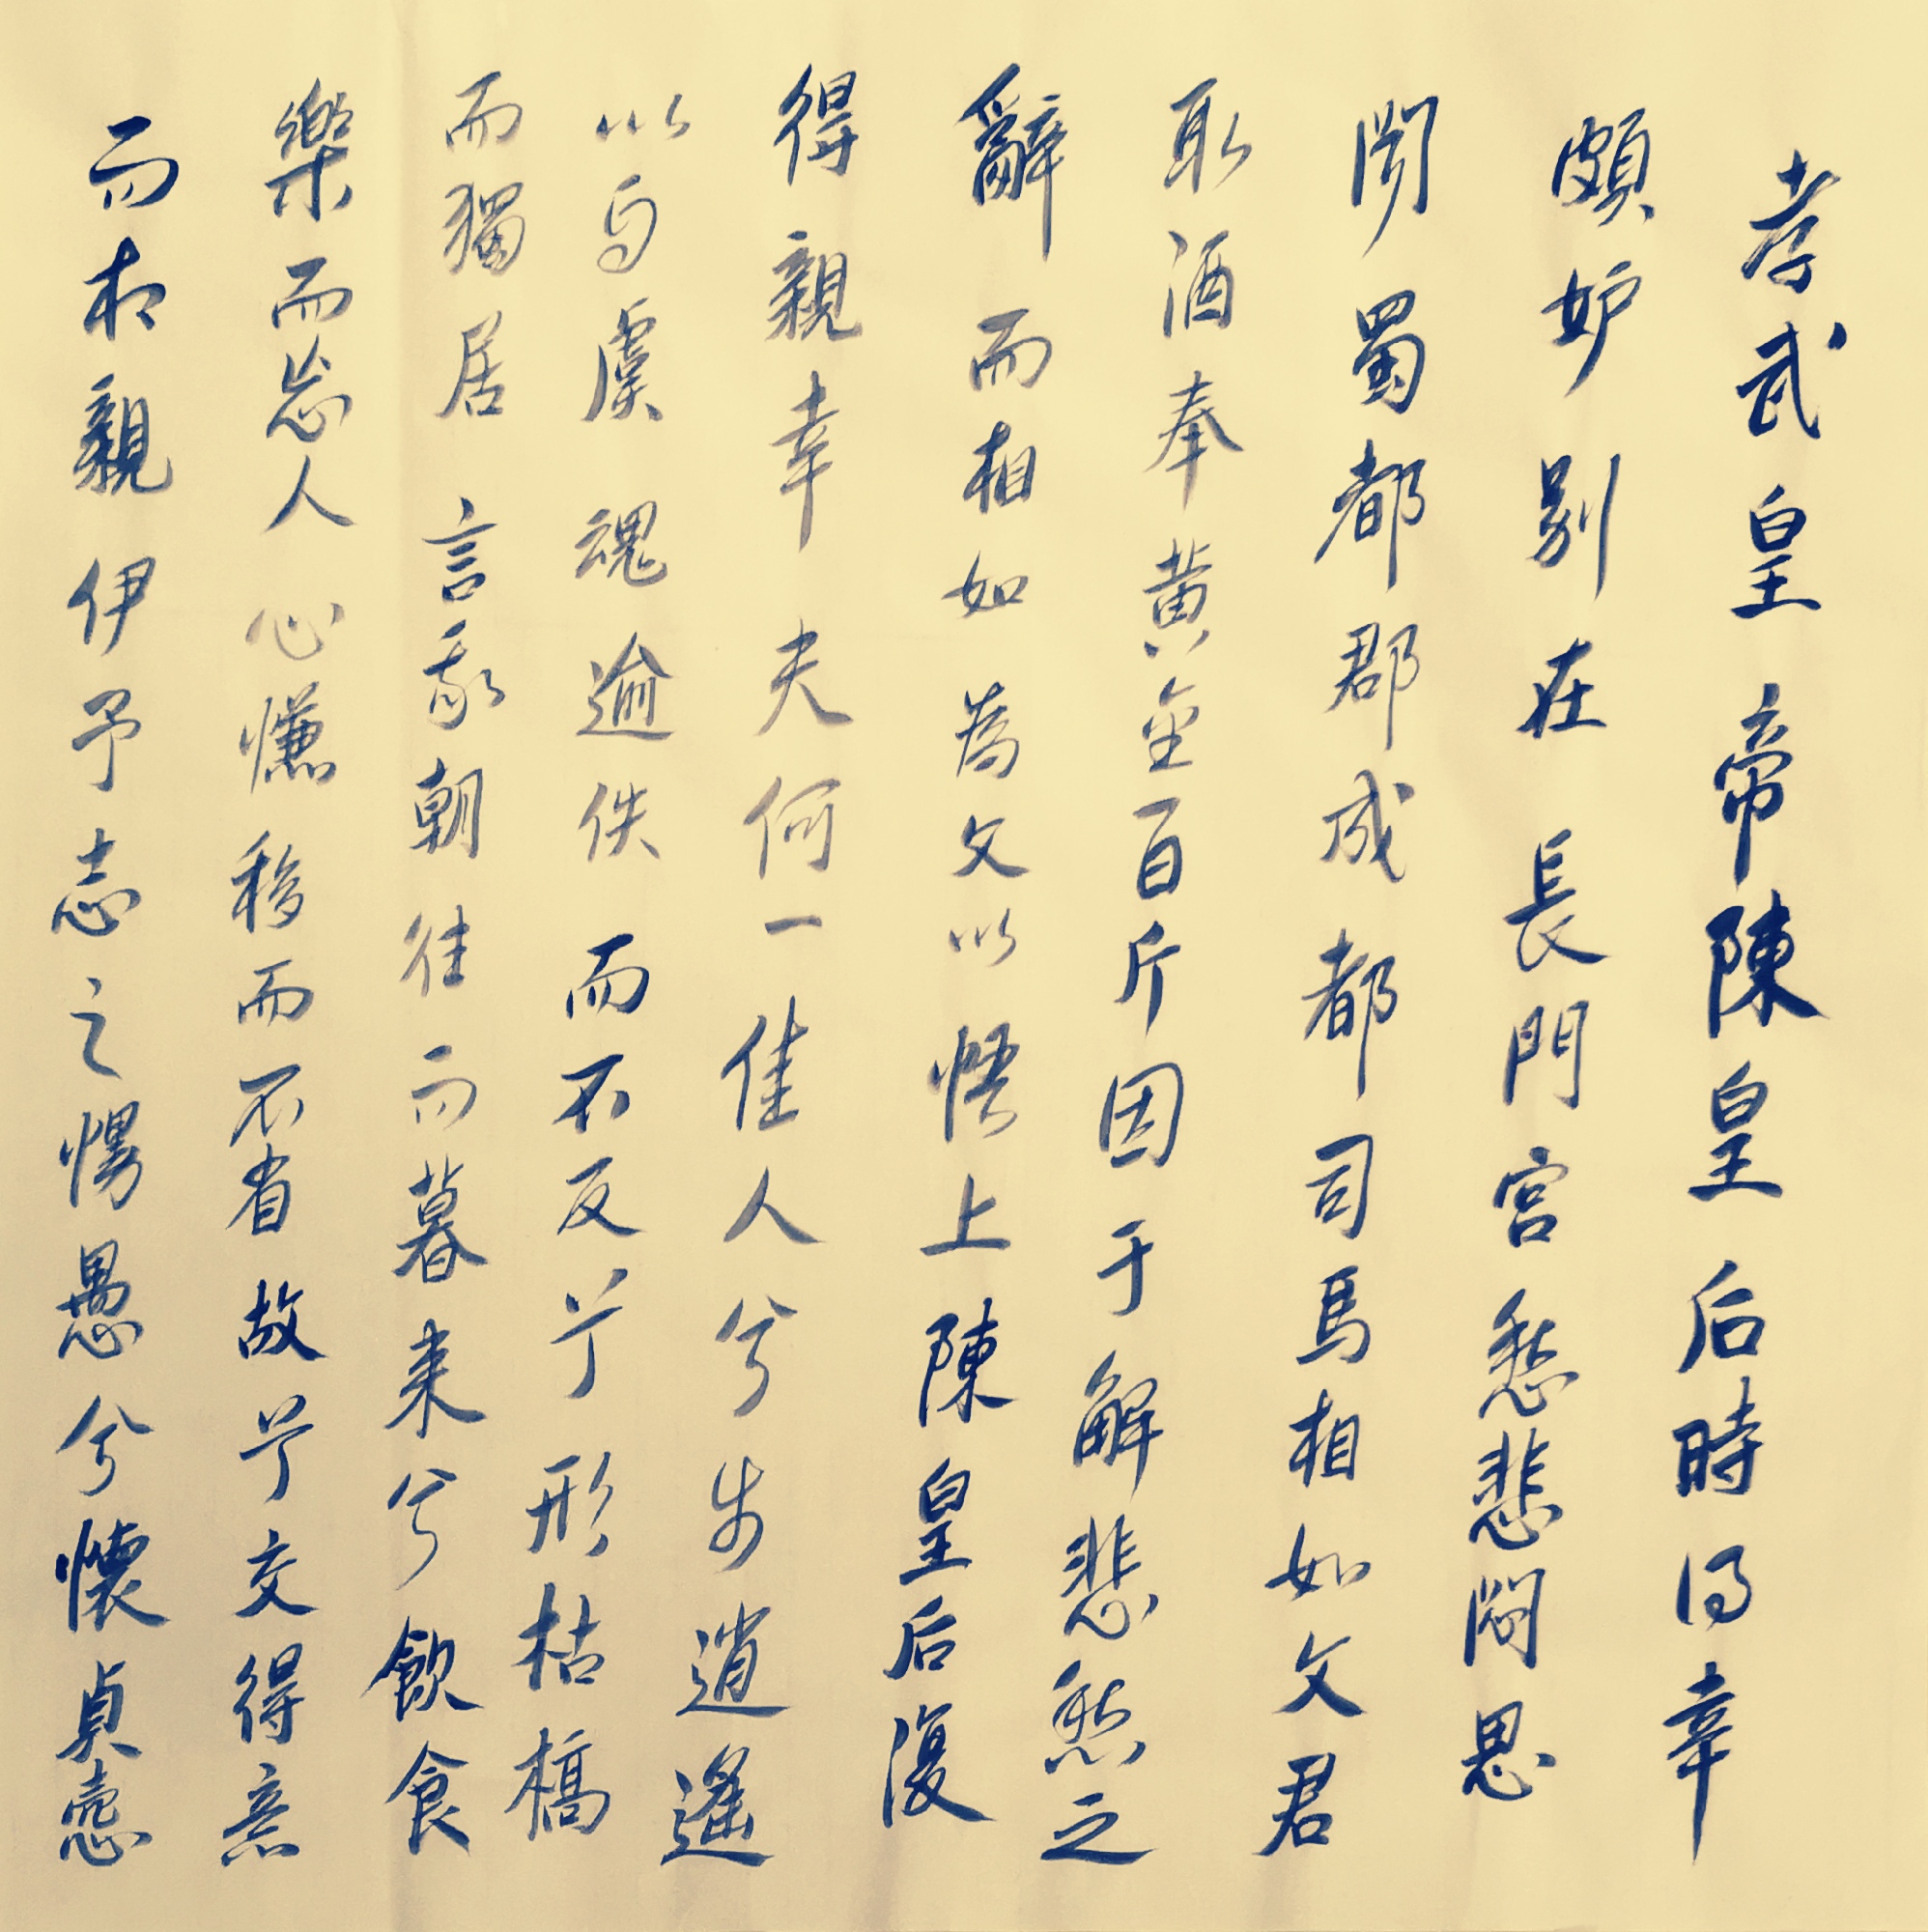 孝武皇帝陳皇后時得幸
頗妒別在長門宮愁悲悶思
聞蜀都郡成都司馬相如文君
取酒奉黄金百斤因于解悲愁之
辭而相如為文以悟上陳皇后復
得親幸夫何一佳人兮步逍遙
以自虞魂逾佚而不反兮形枯槁
而獨居言我朝往而暮来兮飲食
樂而忘人心慊移而不省故兮交得意
而相親伊予志之慢愚兮懷貞愨